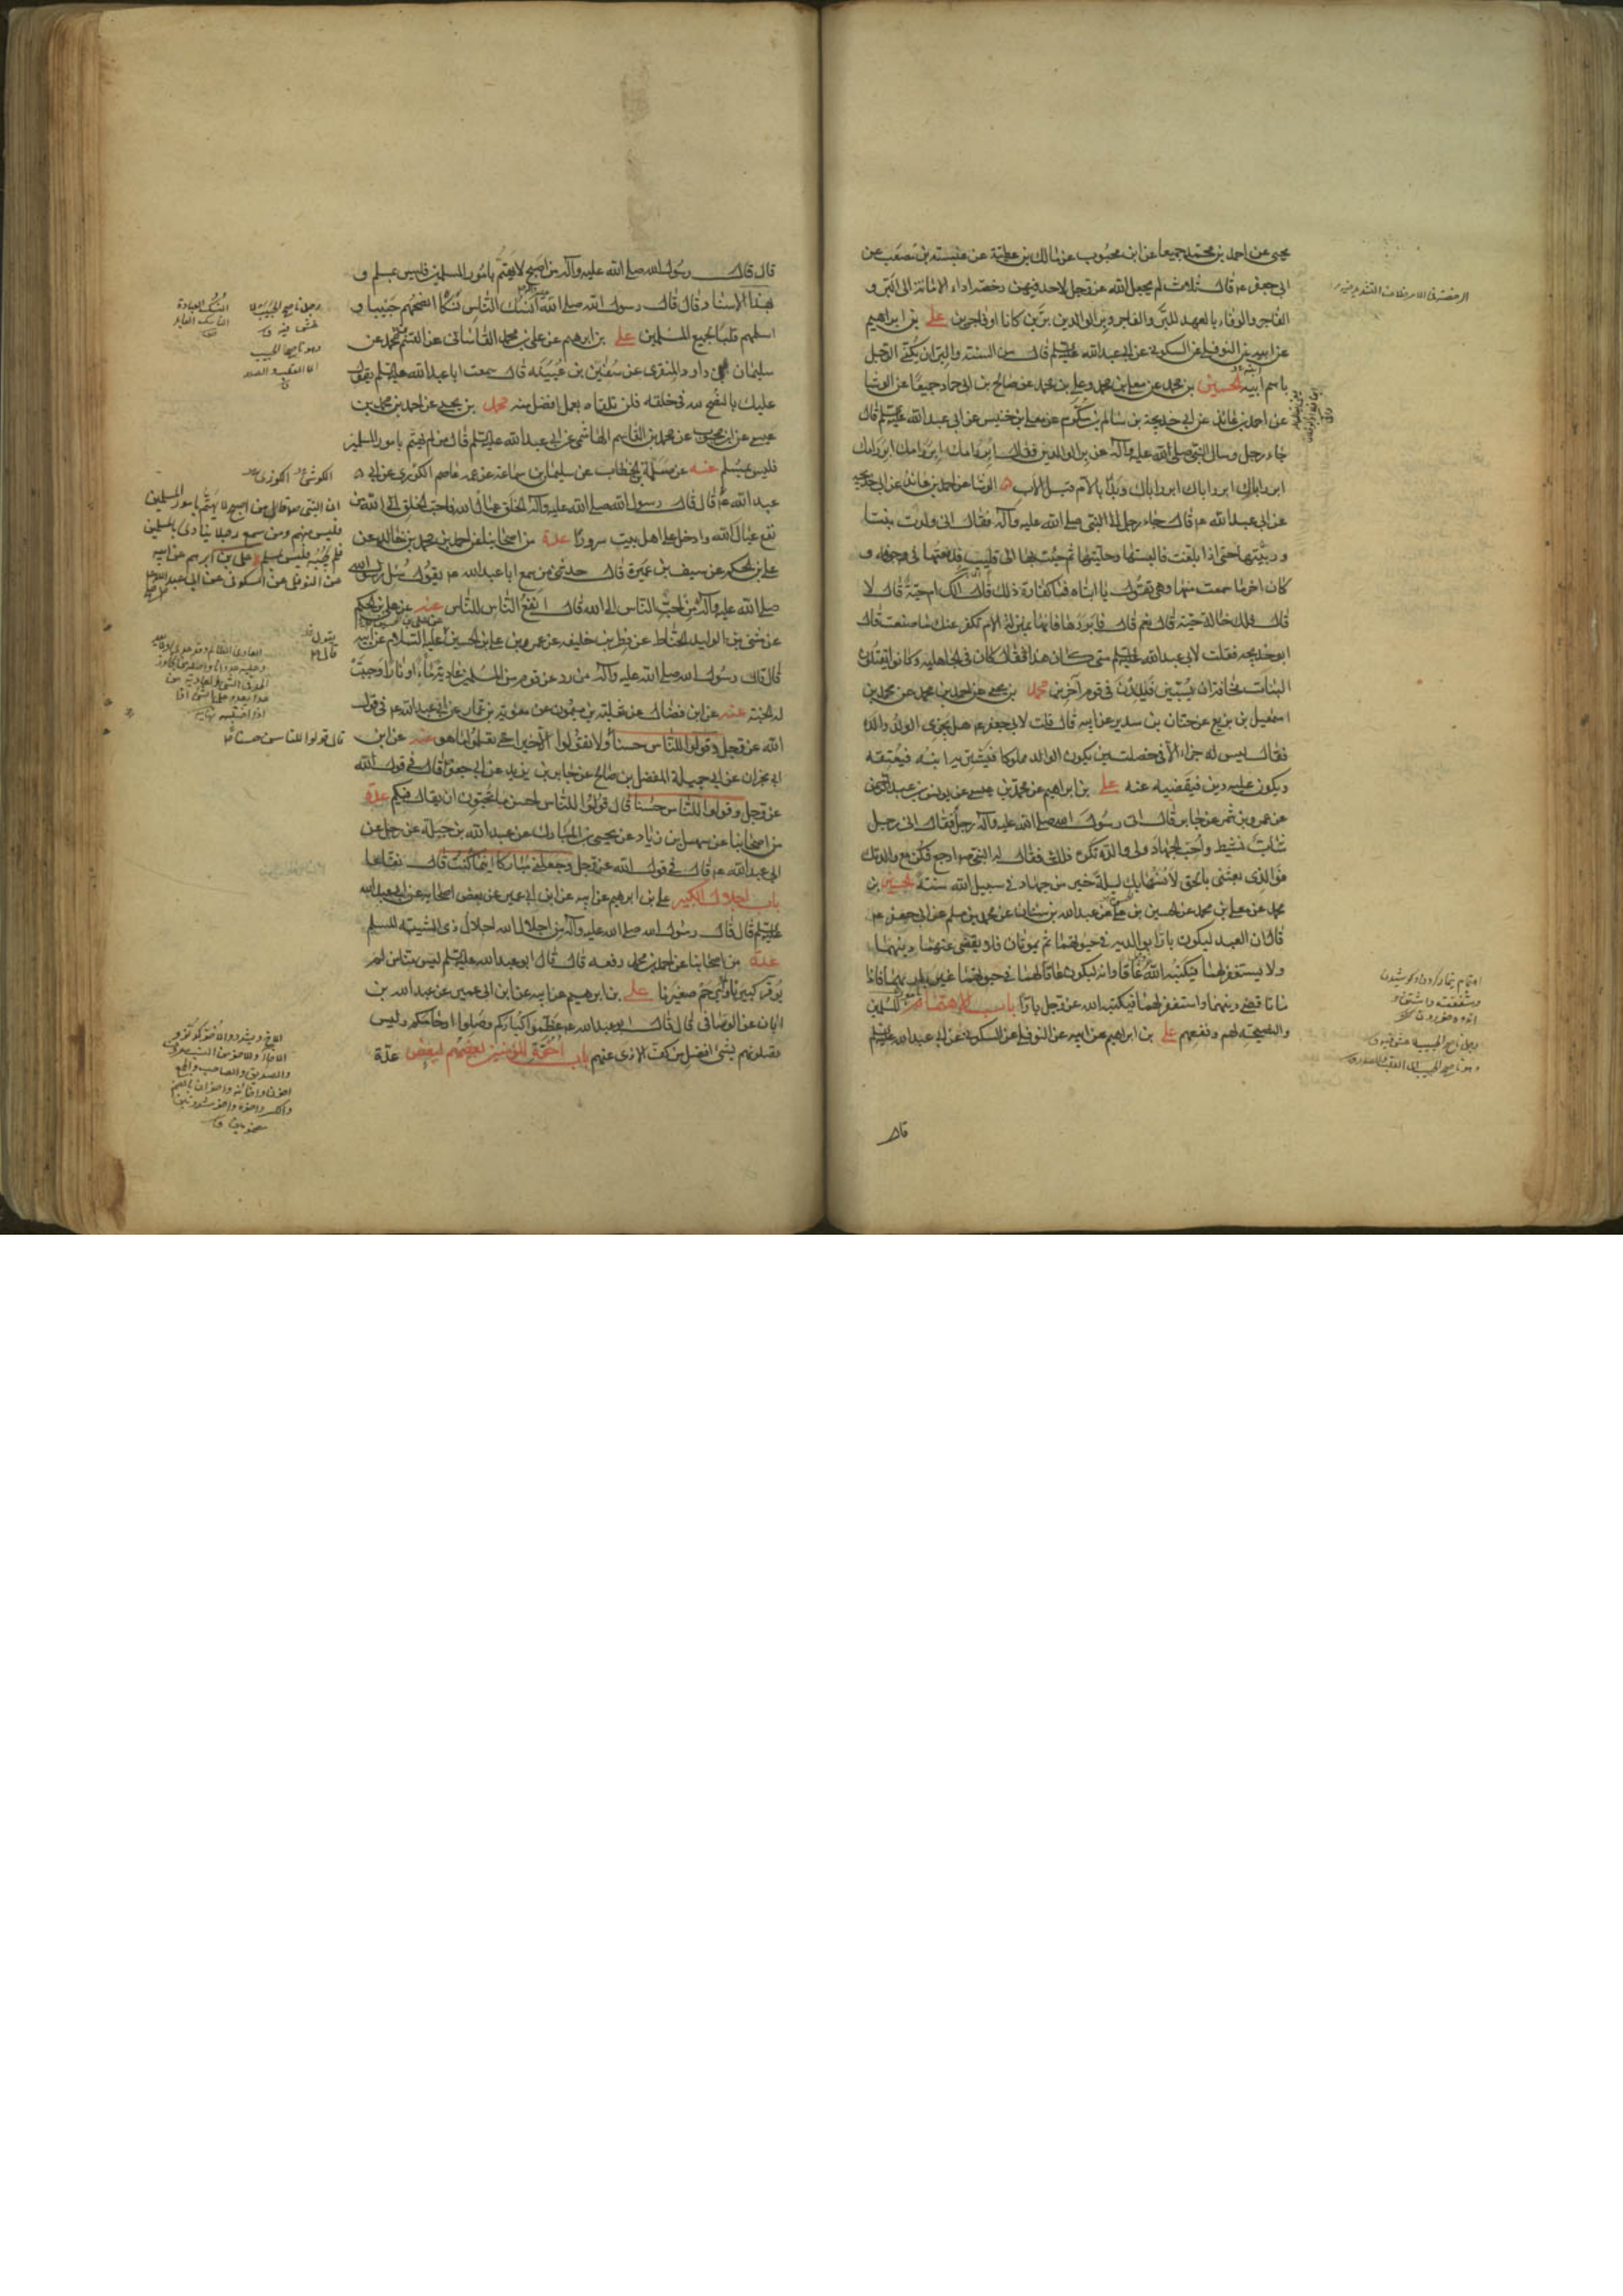 يحيى عن احمد بن محمد جميعا عن ابن محبوب عن مالك بن عطية عن عنبسة بن مصعب عن
ابى جعفر ع م قال ثلاث لم يجعل الله عز وجل لاحد فيهن رخصة اداء الامانة الى البر و
الفاجر والوفاء بالعهد للبر والفاجر وبر الوالدين برين كانا او فاجرين على بن ابراهيم
عن ابيه عن النوفلى عن السكونى عن ابى عبد الله عليه السلم قال من السنة والبر ان يكنى الرجل
باسم ابيه الحسين بن محمد عن معلى بن محمد وعلى بن محمد عن صالح بن ابى حماد جميعا عن الوشا
عن احمد بن عائذ عن ابى خديجة بن سالم بن مكرم عن معلى بن خنيس عن ابى عبد الله عليه السلم قال
جاء رجل وسال النبى صلى الله عليه وآله عن بر الوالدين فقال ابرر امك ابرر امك ابرر امك
ابرر اباك ابرر اباك ابرر اباك وبدأ بالام قبل الاب الوشا عن احمد بن عائذ عن ابى خديجه
عن ابى عبد الله ع م قال جاء رجل الى النبى صلى الله عليه وآله فقال انى ولدت بنتا
وربيتها حتى اذا بلغت فالبستها وحليتها ثم جئت بها الى قليب فدفعتها فى جوفه و
كان اخر ما سمعت منها وهى تقول يا ابتاه فما كفارة ذلك قال الك ام حية قال لا
قال فلك خالة حية قال نعم قال فابررها فانها بمنزلة الام تكفر عنك ما صنعت قال
ابو خديجه فقلت لابى عبد الله عليه السلم متى كان هذا فقال كان فى الجاهلية وكانوا يقتلون
البنات مخافة ان يسبين فيلدن فى قوم آخرين محمد بن يحيى عن احمد بن محمد عن محمد بن
اسمعيل بن بزيع عن حنان بن سدير عن ابيه قال قلت لابى جعفر ع م هل يجزى الولد والده
فقال ليس له جزاء الا فى خصلتين يكون الوالد مملوكا فيشتريه ابنه فيعتقه
ويكون عليه دين فيقضيه عنه على بن ابراهيم عن محمد بن عيسى عن يونس بن عبد الرحمن
عن عمرو بن شمر عن جابر قال اتى رسول الله صلى الله عليه وآله رجل فقال انى رجل
شاب نشيط وأحب الجهاد ولى والدة تكره ذلك فقال له النبى ص ارجع فكن مع والدتك
فوالذى بعثنى بالحق لأنسها بك ليلة خير من جهاد فى سبيل الله سنة الحسين بن
محمد عن معلى بن محمد عن الحسين بن على عن عبد الله بن سنان عن محمد بن مسلم عن ابى جعفر ع م
قال ان العبد ليكون بارا بوالديه فى حيوتهما ثم يموتان فلا يقضى عنهما دينهما
ولا يستغفر لهما فيكتبه الله عاقا وانه ليكون عاقا لهما فى حيوتهما غير بار بهما فاذا
ماتا قضى دينهما واستغفر لهما فيكتبه الله عز وجل بارا باب الاهتمام بامور المسلمين
والنصيحة لهم ونفعهم على بن ابراهيم عن ابيه عن النوفلى عن السكونى عن ابى عبد الله عليه السلم
قال
قال قال رسول الله صلى الله عليه وآله من اصبح لا يهتم بامور المسلمين فليس بمسلم و
بهذا الاسناد قال قال رسول الله صلى الله عليه وآله انسك الناس نسكا انصحهم جيبا و
اسلمهم قلبا لجميع المسلمين على بن ابراهيم عن على بن محمد القاسانى عن القسم بن محمد عن
سليمان بن داود المنقرى عن سفين بن عيينة قال سمعت ابا عبد الله عليه السلم يقول
عليك بالنصح لله فى خلقه فلن تلقاه بعمل افضل منه محمد بن يحيى عن احمد بن محمد بن
عيسى عن ابن محبوب عن محمد بن القاسم الهاشمى عن ابى عبد الله عليه السلم قال من لم يهتم بامور المسلمين
فليس بمسلم عنه عن سلمة بن الخطاب عن سليمان بن سماعة عن عمه عاصم الكوزى عن ابى
عبد الله ع م قال قال رسول الله صلى الله عليه وآله الخلق عيال الله فاحب الخلق الى الله من
نفع عيال الله وادخل على اهل بيت سرورا عدة من اصحابنا عن احمد بن محمد بن خالد عن
على بن الحكم عن سيف بن عميرة قال حدثنى من سمع ابا عبد الله ع م يقول سئل رسول الله
صلى الله عليه وآله من احب الناس الى الله قال انفع الناس للناس عنه عن على بن الحكم
عن مثنى بن الوليد الحناط عن فطر بن خليفه عن عمر بن على بن الحسين عليه السلام عن ابيه
قال قال رسول الله صلى الله عليه وآله من رد عن قوم من المسلمين عادية ماء او نارا وجبت
له الجنة عنه عن ابن فضال عن ثعلبة بن ميمون عن معوية بن عمار عن ابى عبد الله ع م فى قول
الله عز وجل وقولوا للناس حسنا ولا تقولوا الا خيرا حتى تعلموا ما هو عنه عن ابن
ابى نجران عن ابى جميلة المفضل بن صالح عن جابر بن يزيد عن ابى جعفر قال فى قول الله
عز وجل وقولوا للناس حسنا قال قولوا للناس احسن ما تحبون ان يقال فيكم عدة
من اصحابنا عن سهل بن زياد عن يحيى بن المبارك عن عبد الله بن جبلة عن رجل عن
ابى عبد الله ع م قال فى قول الله عز وجل وجعلنى مباركا اينما كنت قال نفاعا
باب اجلال الكبير على بن ابراهيم عن ابيه عن ابن ابى عمير عن بعض اصحابه عن ابى عبد الله
عليه السلم قال قال رسول الله صلى الله عليه وآله من اجلال الله اجلال ذى الشيبة المسلم
عدة من اصحابنا عن احمد بن محمد رفعه قال قال ابو عبد الله عليه السلم ليس منا من لم
يوقر كبيرنا ويرحم صغيرنا على بن ابراهيم عن ابيه عن ابن ابى عمير عن عبد الله بن
ابان عن الوصافى قال قال ابو عبد الله ع م عظموا كباركم وصلوا ارحامكم وليس
تصلونهم بشئ افضل من كف الاذى عنهم باب اخوة المؤمنين بعضهم لبعض عدة
النسك العبادة
الناسك العابد
رجل ناصح الجيب
الكوشى الكوزى
ان النبى ص قال من اصبح لا يهتم بامور المسلمين
فليس منهم ومن سمع رجلا ينادى يا للمسلمين
فلم يجبه فليس بمسلم على بن ابراهيم عن ابيه
عن النوفلى عن السكونى عن ابى عبد الله
قال قولوا للناس حسنا